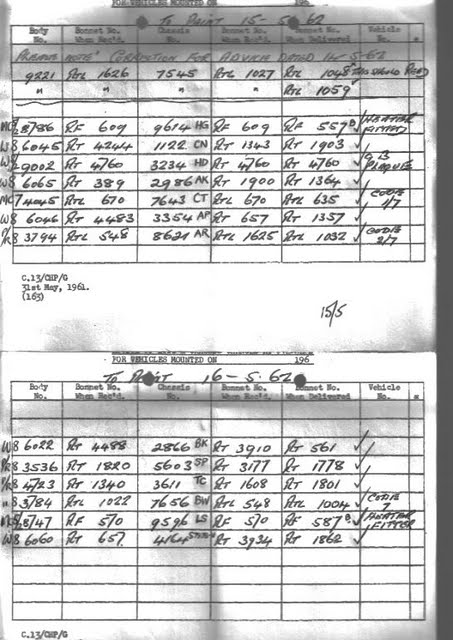 FOR VEHICLES MOUNTED ON 196
To PAINT 15-5-62
Body No. Bonnet No. When Rec'd. Chassis No. Bonnet No. When Rec'd. Bonnet No. When Delivered Vehicle No. *
PLEASE NOTE CORRECTION FOR ADVICE DATED 14-5-62
9221 RTL 1626 7545 RTL 1027 RTL 1048 THIS SHOULD READ
" " " " RTL 1059
8/786 RF 609 9614 HG RF 609 RF 557 D ✓ HEATER FITTED
W8 6045 RT 4244 1122 CN RT 1343 RT 1903 ✓
9002 RT 4760 3234 HD RT 4760 RT 4760 ✓ PLAQUES
W8 6065 RT 389 2986 AK RT 1900 RT 1364 ✓
4045 RTL 670 7643 CT RTL 670 RTL 635 ✓ CODE 1/7
W8 6046 RT 4483 3354 AP RT 657 RT 1357 ✓
P/R 8 3794 RTL 548 8621 AR RTL 1625 RTL 1032 ✓ CODE 2/7
C.13/CHP/G
31st May, 1961.
(163)
15/5
FOR VEHICLES MOUNTED ON 196
To PAINT 16-5-62
Body No. Bonnet No. When Rec'd. Chassis No. Bonnet No. When Rec'd. Bonnet No. When Delivered Vehicle No. *
W8 6022 RT 4488 2866 BK RT 3910 RT 561 ✓
P/R 8 3536 RT 1820 5603 SP RT 3177 RT 1778 ✓
P/R 8 4723 RT 1340 3611 TC RT 1608 RT 1801 ✓
" 8 3/84 RTL 1022 7656 BW RTL 548 RTL 1004 ✓ CODE 7
8/47 RF 510 9596 LS RF 510 RF 587 D ✓ HEATER FITTED
W8 6060 RT 657 4164 RT 3934 RT 1862 ✓
C.13/CHP/G